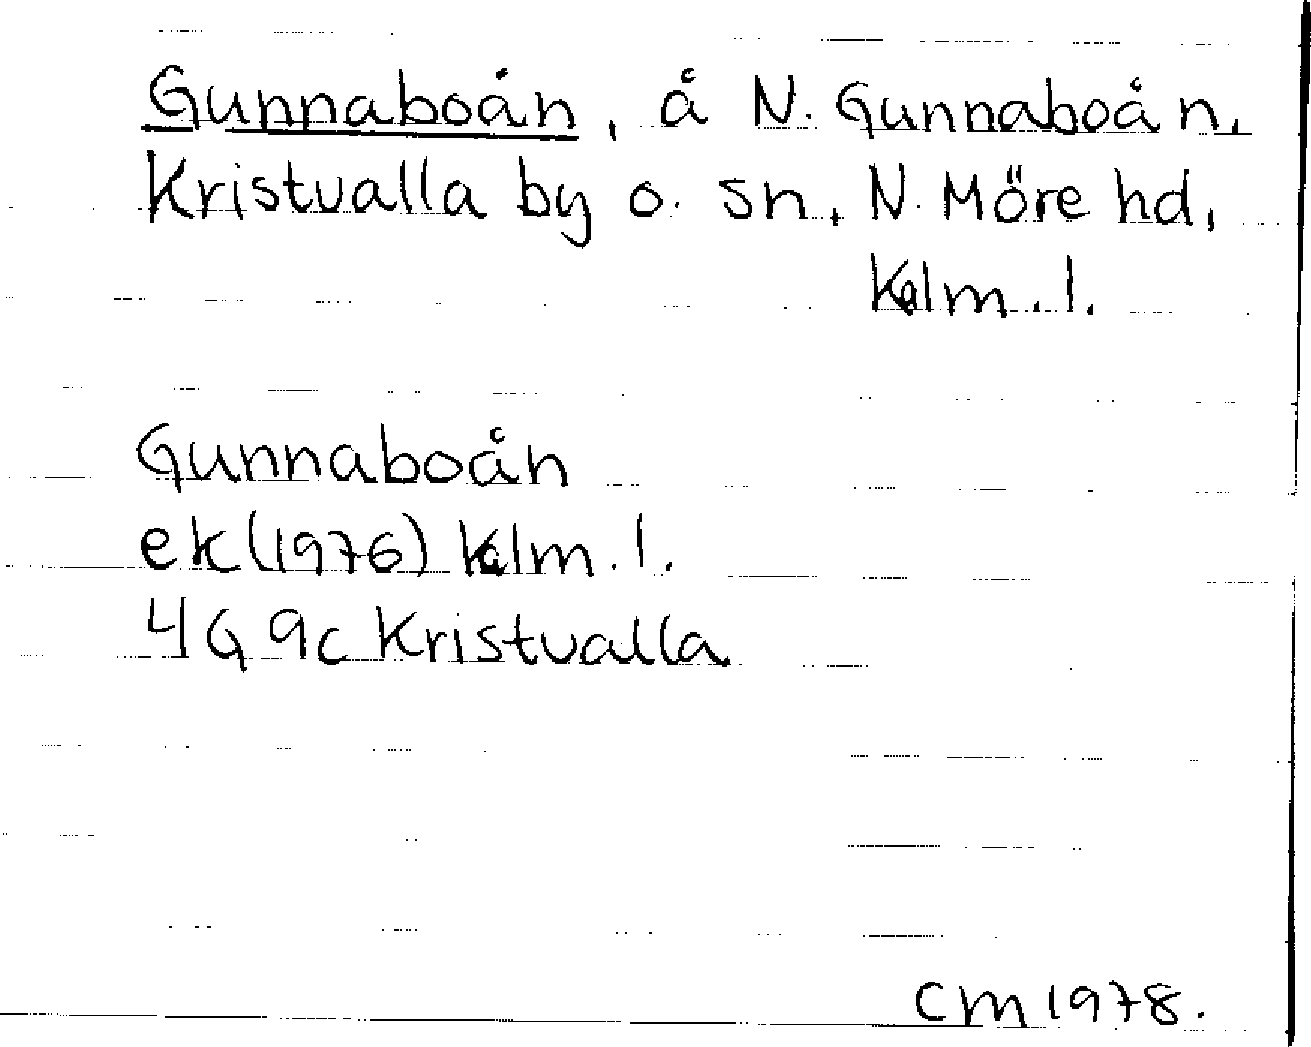 Gunnaboån, å N. Gunnaboån,
Kristvalla by o. sn, N. Möre hd,
Kalm. l.
Gunnaboån
ek (1976) Kalm. l.
4G 9c Kristvalla
CM 1978.